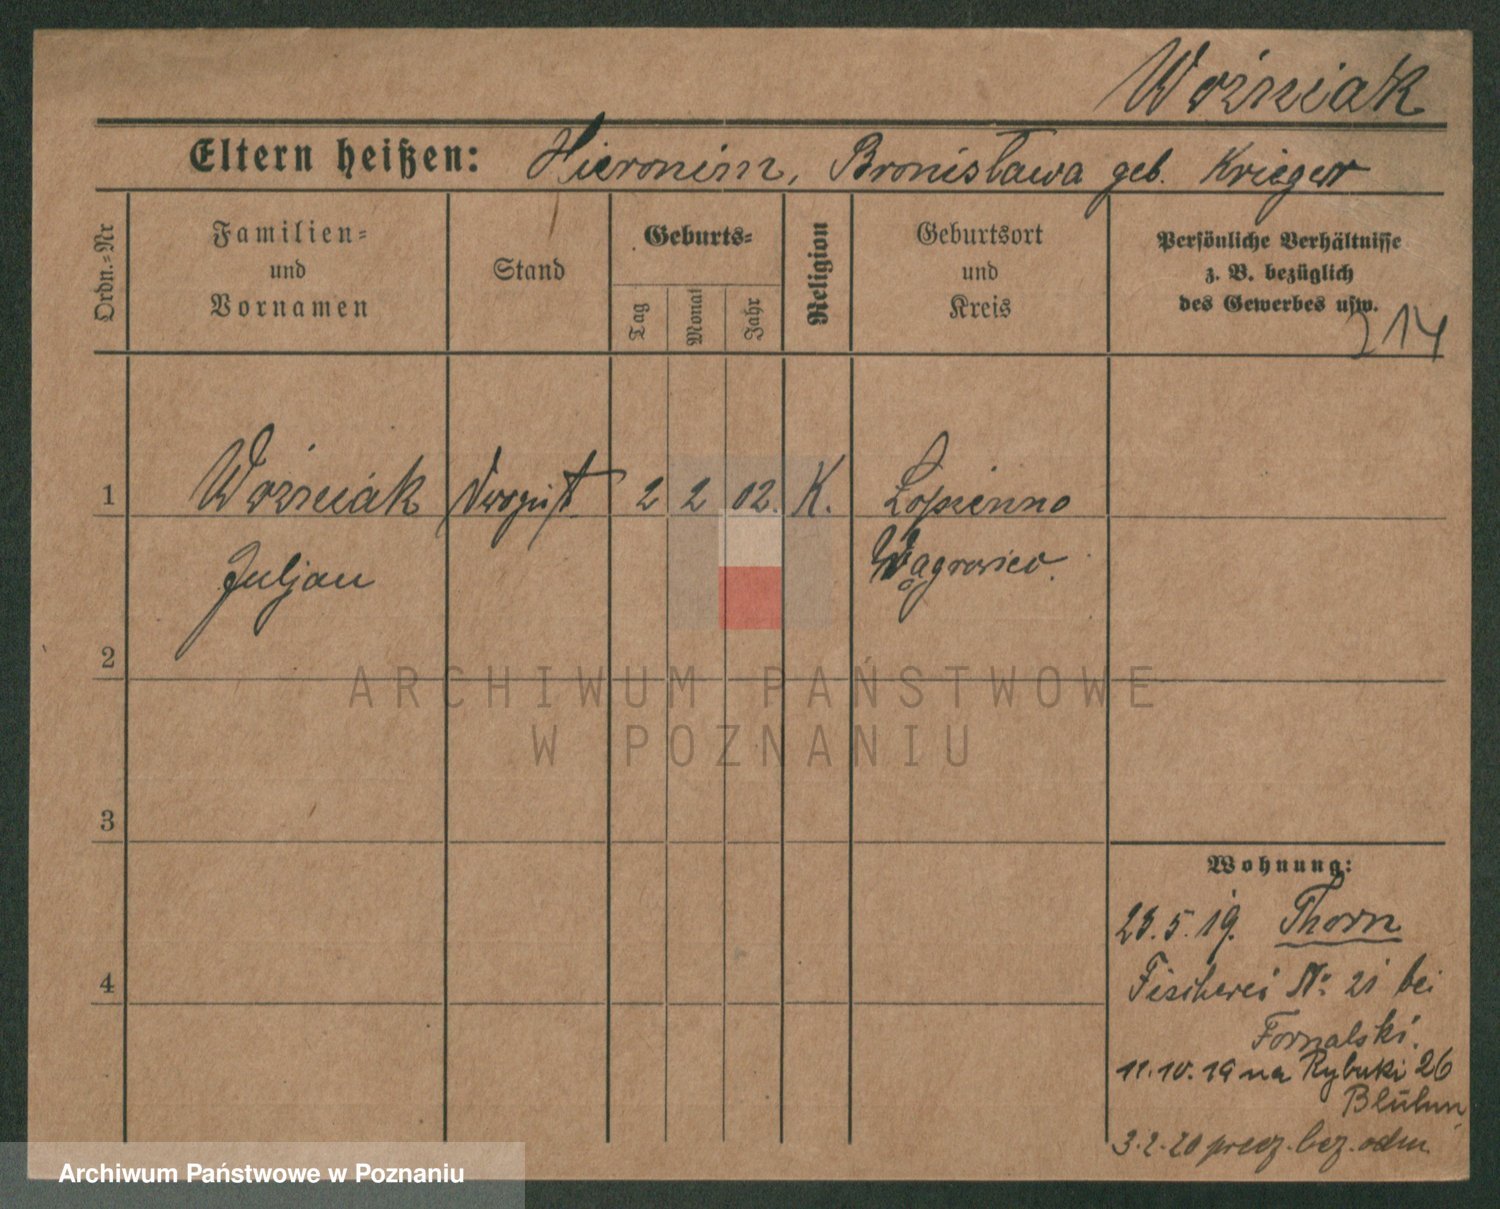 Woźniak
Eltern heißen: Hieronim, Bronisława geb. Krieger
Ordn.=Nr
Familien=
und
Vornamen
Stand
Geburts=
Tag
Monat
Jahr
Religion
Geburtsort
und
Kreis
Persönliche Verhältnisse
z. B. bezüglich
des Gewerbes usw.
214
1 Woźniak 2 2 02. K. Łopienno
Juljan Wągrowiec.
2
3
4
Wohnung:
23.5.19. Thorn
Fischerei No 21 bei
Fornalski.
11.10.19 na Rybaki 26
Blühm
3.2.20 bez. odm.
ARCHIWUM PAŃSTWOWE
W POZNANIU
Archiwum Państwowe w Poznaniu